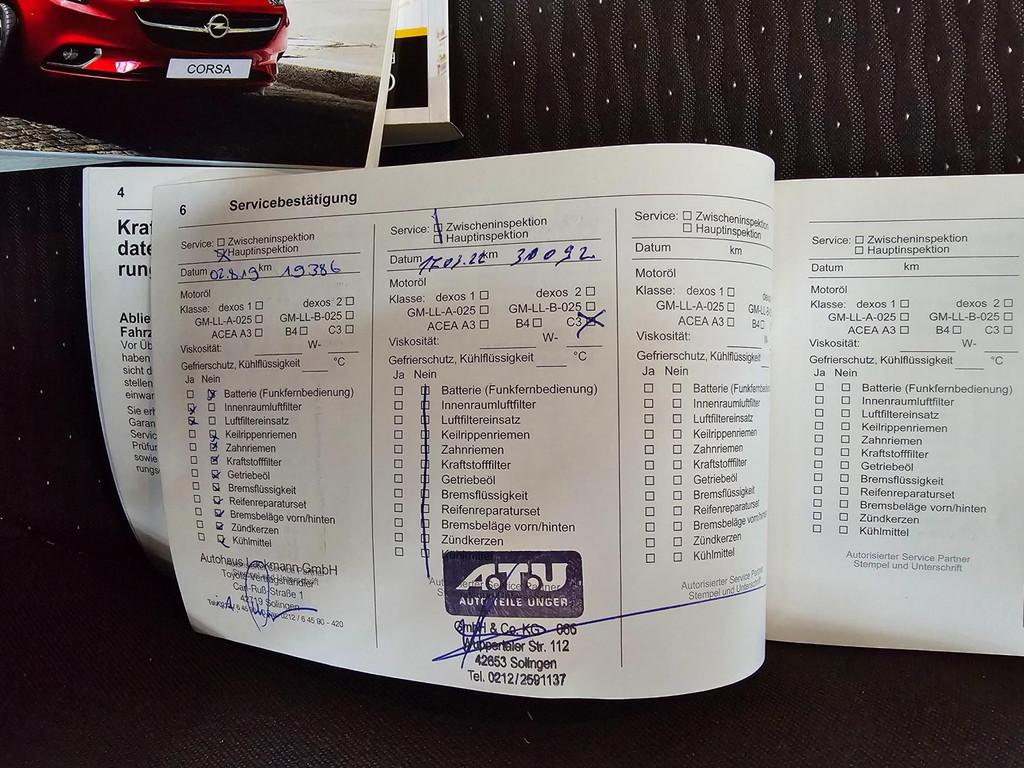 CORSA
4
Kraf
date
rung
Ablie
Fahrz
Vor Üb
haben
sicht d
stellen
einwar
Sie erh
Garan
Servic
Prüfun
sowie
rungs
6 Servicebestätigung
Service: Zwischeninspektion
Hauptinspektion
Datum 02.8.19 km 19386
Motoröl
Klasse: dexos 1 dexos 2
GM-LL-A-025 GM-LL-B-025
ACEA A3 B4 C3
Viskosität: W-
Gefrierschutz, Kühlflüssigkeit °C
Ja Nein
Batterie (Funkfernbedienung)
Innenraumluftfilter
Luftfiltereinsatz
Keilrippenriemen
Zahnriemen
Kraftstofffilter
Getriebeöl
Bremsflüssigkeit
Reifenreparaturset
Bremsbeläge vorn/hinten
Zündkerzen
Kühlmittel
Autohaus Lackmann GmbH
Toyota-Vertragshändler
Carl-Ruß-Straße 1
42719 Solingen
0212 / 6 45 90 - 420
Service: Zwischeninspektion
Hauptinspektion
Datum 17.03.22 km 31092
Motoröl
Klasse: dexos 1 dexos 2
GM-LL-A-025 GM-LL-B-025
ACEA A3 B4 C3
Viskosität: W-
Gefrierschutz, Kühlflüssigkeit °C
Ja Nein
Batterie (Funkfernbedienung)
Innenraumluftfilter
Luftfiltereinsatz
Keilrippenriemen
Zahnriemen
Kraftstofffilter
Getriebeöl
Bremsflüssigkeit
Reifenreparaturset
Bremsbeläge vorn/hinten
Zündkerzen
Kühlmittel
A.T.U
AUTO TEILE UNGER
GmbH & Co. KG 066
Wuppertaler Str. 112
42653 Solingen
Tel. 0212/2591137
Service: Zwischeninspektion
Hauptinspektion
Datum km
Motoröl
Klasse: dexos 1 dexos 2
GM-LL-A-025 GM-LL-B-025
ACEA A3 B4 C3
Viskosität: W-
Gefrierschutz, Kühlflüssigkeit
Ja Nein
Batterie (Funkfernbedien
Innenraumluftfilter
Luftfiltereinsatz
Keilrippenriemen
Zahnriemen
Kraftstofffilter
Getriebeöl
Bremsflüssigkeit
Reifenreparaturset
Bremsbeläge vorn/hinten
Zündkerzen
Kühlmittel
Autorisierter Service Partner
Stempel und Unterschrift
Service: Zwischeninspektion
Hauptinspektion
Datum km
Motoröl
Klasse: dexos 1 dexos 2
GM-LL-A-025 GM-LL-B-025
ACEA A3 B4 C3
Viskosität: W-
Gefrierschutz, Kühlflüssigkeit °C
Ja Nein
Batterie (Funkfernbedienung)
Innenraumluftfilter
Luftfiltereinsatz
Keilrippenriemen
Zahnriemen
Kraftstofffilter
Getriebeöl
Bremsflüssigkeit
Reifenreparaturset
Bremsbeläge vorn/hinten
Zündkerzen
Kühlmittel
Autorisierter Service Partner
Stempel und Unterschrift